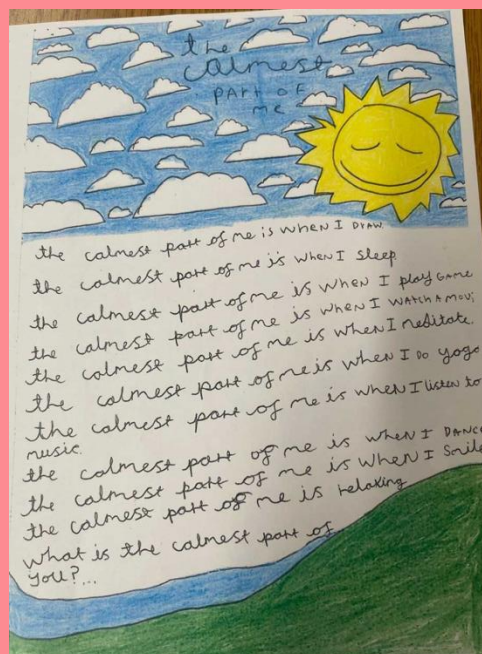 the
calmest
part of
me
the calmest part of me is when I Draw.
the calmest part of me is when I sleep
the calmest part of me is when I play GAME
the calmest part of me is when I WATCH A MOVi
the calmest part of me is when I meditate.
the calmest part of me is when I DO yoga
the calmest part of me is when I listen to
music.
the calmest part of me is when I DANCE
the calmest part of me is when I Smile
the calmest part of me is relaxing
what is the calmest part of
you?...